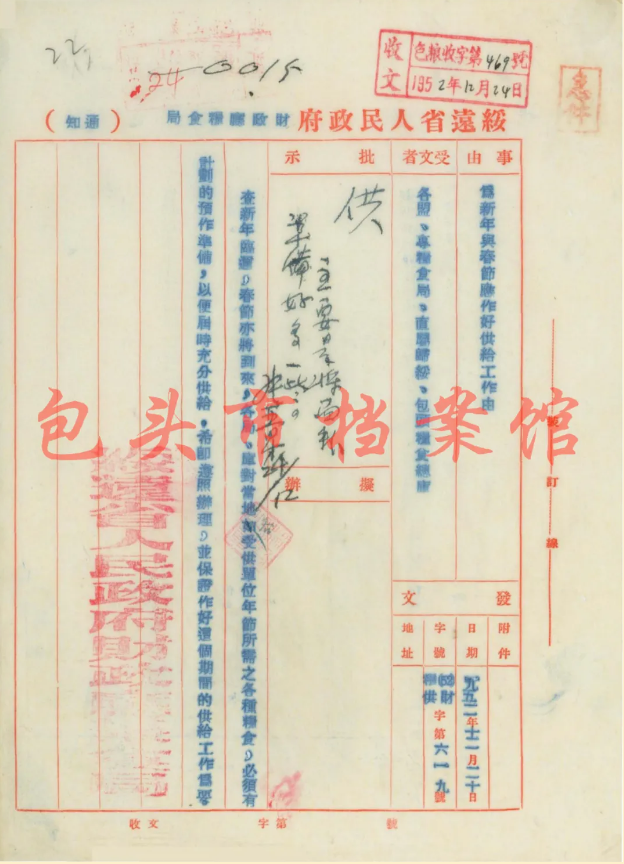 24-0015
收文
包粮收字第469號
1952年12月24日
急件
綏遠省人民政府財政廳糧食局（通知）
事由
為新年與春節應作好供給工作由
受文者
各盟、專糧食局、直屬歸綏、包頭糧食總庫
批示
供
擬辦
發文
附件
日期
一九五二年十二月二十日
字號
財糧供字第六一九
地址
查新年臨邇，春節亦將到來，各局、庫對當地領受供單位年節所需之各種糧食，必須有
計劃的預作準備，以便屆時充分供給，希即遵照辦理，並保證作好這個期間的供給工作為要。
綏遠省人民政府財政廳糧食局
包头市档案馆
訂
線
收文
字第
號